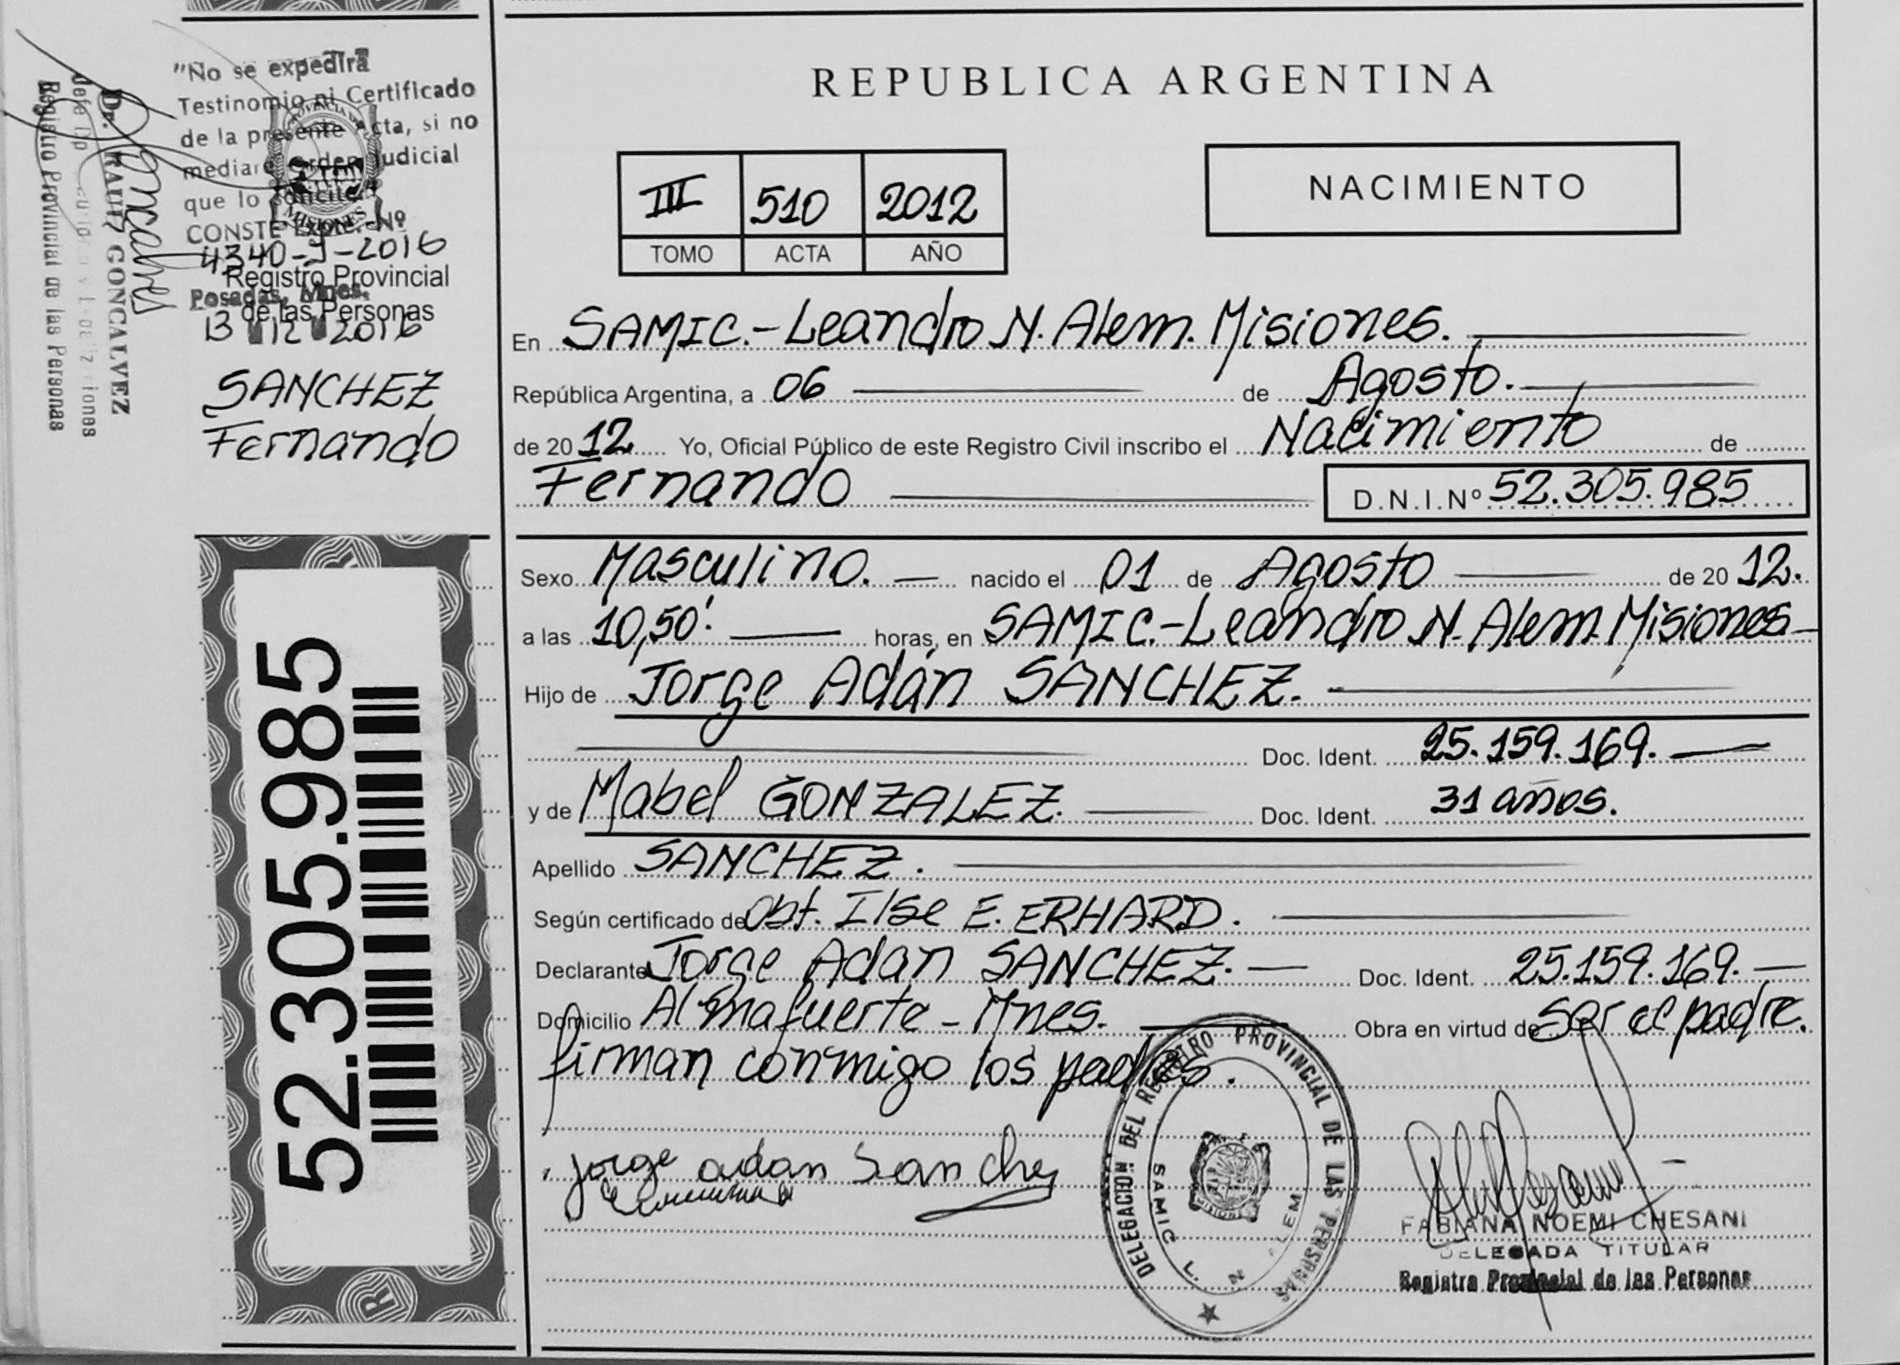 "No se expedirá
Testinomio ni Certificado
de la presente Acta, si no
mediare orden judicial
que lo solicite.
CONSTE Expte. Nº
4340-J-2016
Registro Provincial
de las Personas
Posadas, Mnes.
13 12 2016
SANCHEZ
Fernando
Dr. RAUL GONCALVEZ
Registro Provincial de las Personas
MISIONES
52.305.985
REPUBLICA ARGENTINA
III 510 2012
TOMO ACTA AÑO
NACIMIENTO
En SAMIC.-Leandro N. Alem. Misiones.
República Argentina, a 06 de Agosto.
de 2012 Yo, Oficial Público de este Registro Civil inscribo el Nacimiento de
Fernando D.N.I.Nº 52.305.985
Sexo Masculino. nacido el 01 de Agosto de 2012.
a las 10,50'. horas, en SAMIC.-Leandro N. Alem. Misiones
Hijo de Jorge Adán SANCHEZ.
Doc. Ident. 25.159.169.
y de Mabel GONZALEZ. Doc. Ident. 31 años.
Apellido SANCHEZ.
Según certificado de Obt. Ilse E. ERHARD.
Declarante Jorge Adan SANCHEZ. Doc. Ident. 25.159.169.
Domicilio Almafuerte - Mnes. Obra en virtud de Ser el padre.
firman conmigo los padres.
Jorge adan Sanchez
DELEGACION DEL REGISTRO PROVINCIAL DE LAS PERSONAS
SAMIC L. N. ALEM
FABIANA NOEMI CHESANI
DELEGADA TITULAR
Registro Provincial de las Personas